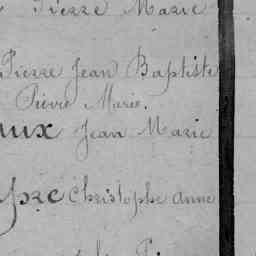 Pierre Marie
Pierre Jean Baptiste
Pierre Marie.
aux Jean Marie
pre Christophe Anne